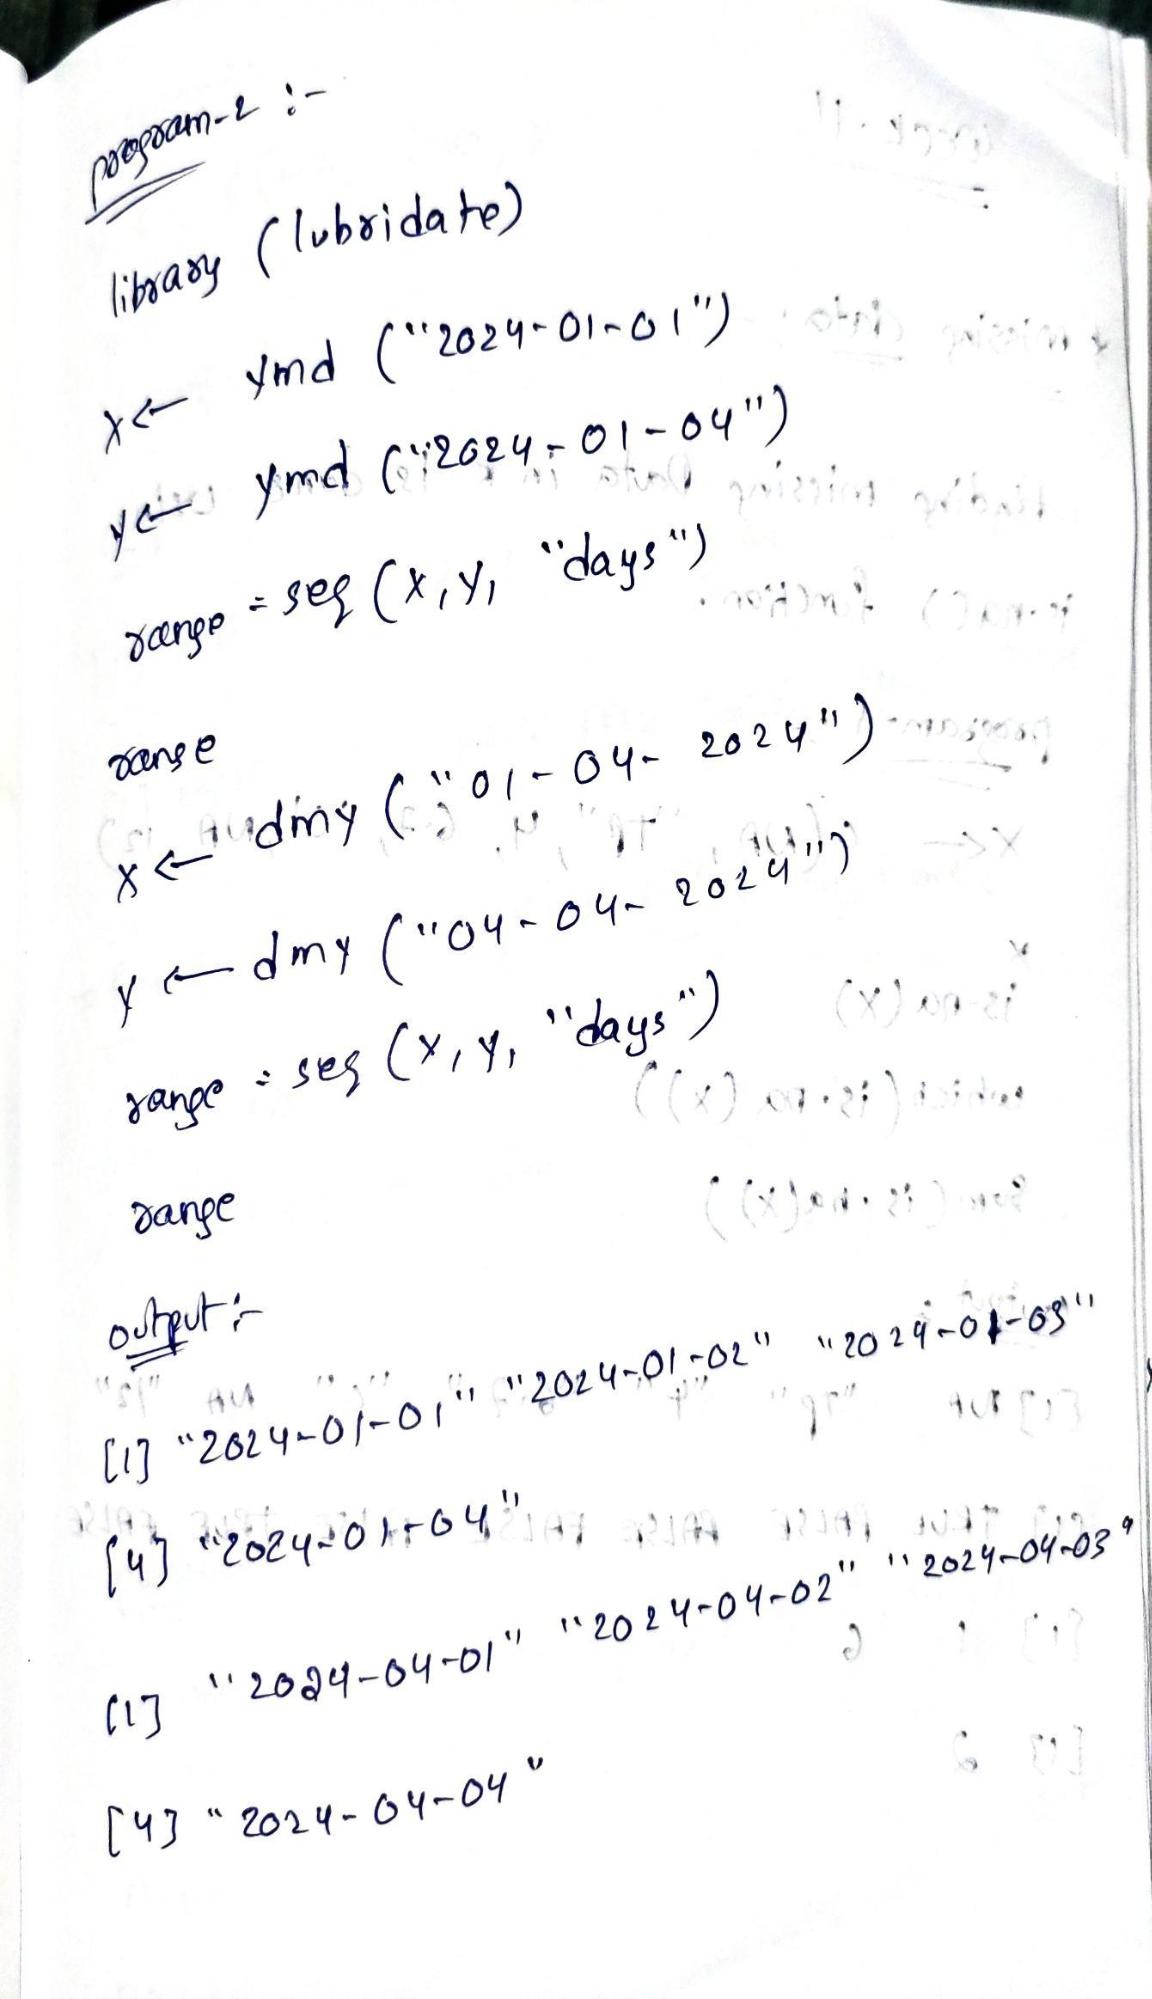 program-2 :-
library (lubridate)
x← ymd ("2024-01-01")
y← ymd ("2024-01-04")
range = seq (x,y, "days")
range
x← dmy ("01-04-2024")
y← dmy ("04-04-2024")
range = seq (x,y, "days")
range
output :-
[1] "2024-01-01" "2024-01-02" "2024-01-03"
[4] "2024-01-04"
[1] "2024-04-01" "2024-04-02" "2024-04-03"
[4] "2024-04-04"